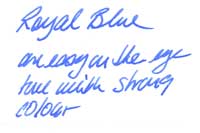 Royal Blue
an easy on the eye
tone with strong
colour